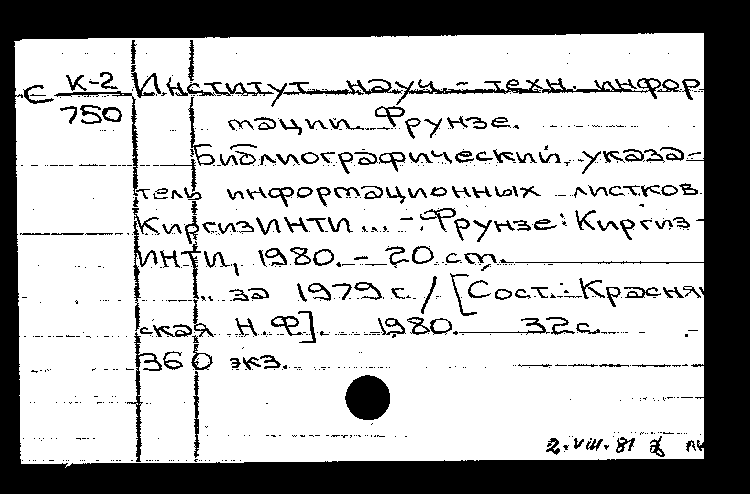 С К-2 Институт науч.- техн. инфор
750 мации. Фрунзе.
Библиографический указа-
тель информационных листков
КиргизИНТИ... -. Фрунзе: Киргиз-
ИНТИ, 1980. - 20 cm.
.. за 1979 г. / [Сост.: Красня
ская Н.Ф]. 1980. 32с.
360 экз.
2.VIII.81